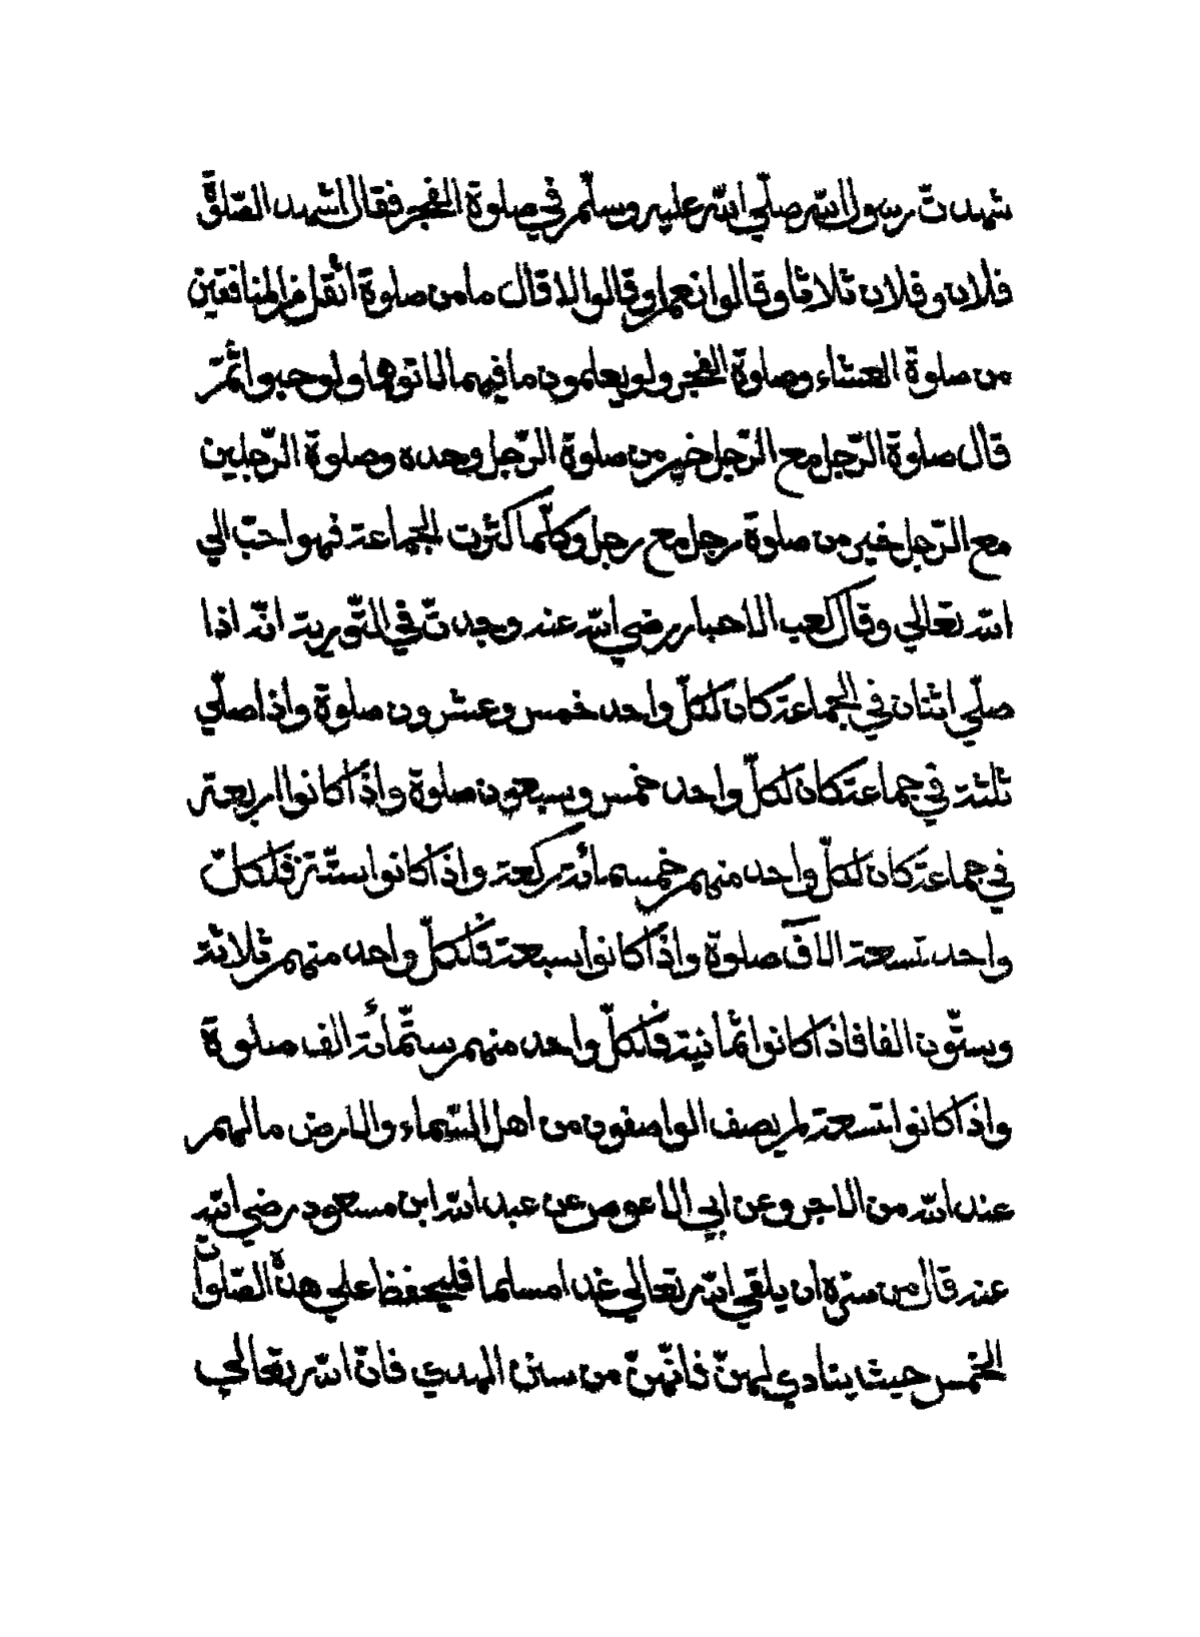 شهدت رسول الله صلّي الله عليه وسلّم في صلوة الفجر فقال اشهد الصّلوة
فلان وفلان ثلاثا وقالوا نعم او قالوا لا قال ما من صلوة اثقل من المنافقين
من صلوة العشاء وصلوة الفجر ولو يعلمون ما فيهما لاتوهما ولو حبوا ثمّ
قال صلوة الرّجل مع الرّجل خير من صلوة الرّجل وحده وصلوة الرّجلين
مع الرّجل خير من صلوة رجل مع رجل وكلّما كثرت الجماعة فهو احبّ الي
الله تعالي وقال كعب الاحبار رضي الله عنه وجدت في التّورية انّه اذا
صلّي اثنان في الجماعة كان لكلّ واحد خمس وعشرون صلوة واذا صلّي
ثلثة في جماعة كان لكلّ واحد خمس وسبعون صلوة واذا كانوا اربعة
في جماعة كان لكلّ واحد منهم خمسمائة ركعة واذا كانوا ستّة فلكلّ
واحد تسعة الاف صلوة واذا كانوا سبعة فلكلّ واحد منهم ثلاثة
وستّون الفا فاذا كانوا ثمانية فلكلّ واحد منهم ستّمائة الف صلوة
واذا كانوا تسعة لم يصف الواصفون من اهل السّماء والارض ما لهم
عند الله من الاجر وعن ابي الاعوص عن عبد الله ابن مسعود رضي الله
عنه قال من سرّه ان يلقي الله تعالي غدا مسلما فليحفظ علي هذه الصّلوات
الخمس حيث ينادي لهنّ فانّهنّ من سنن الهدي فانّ الله تعالي